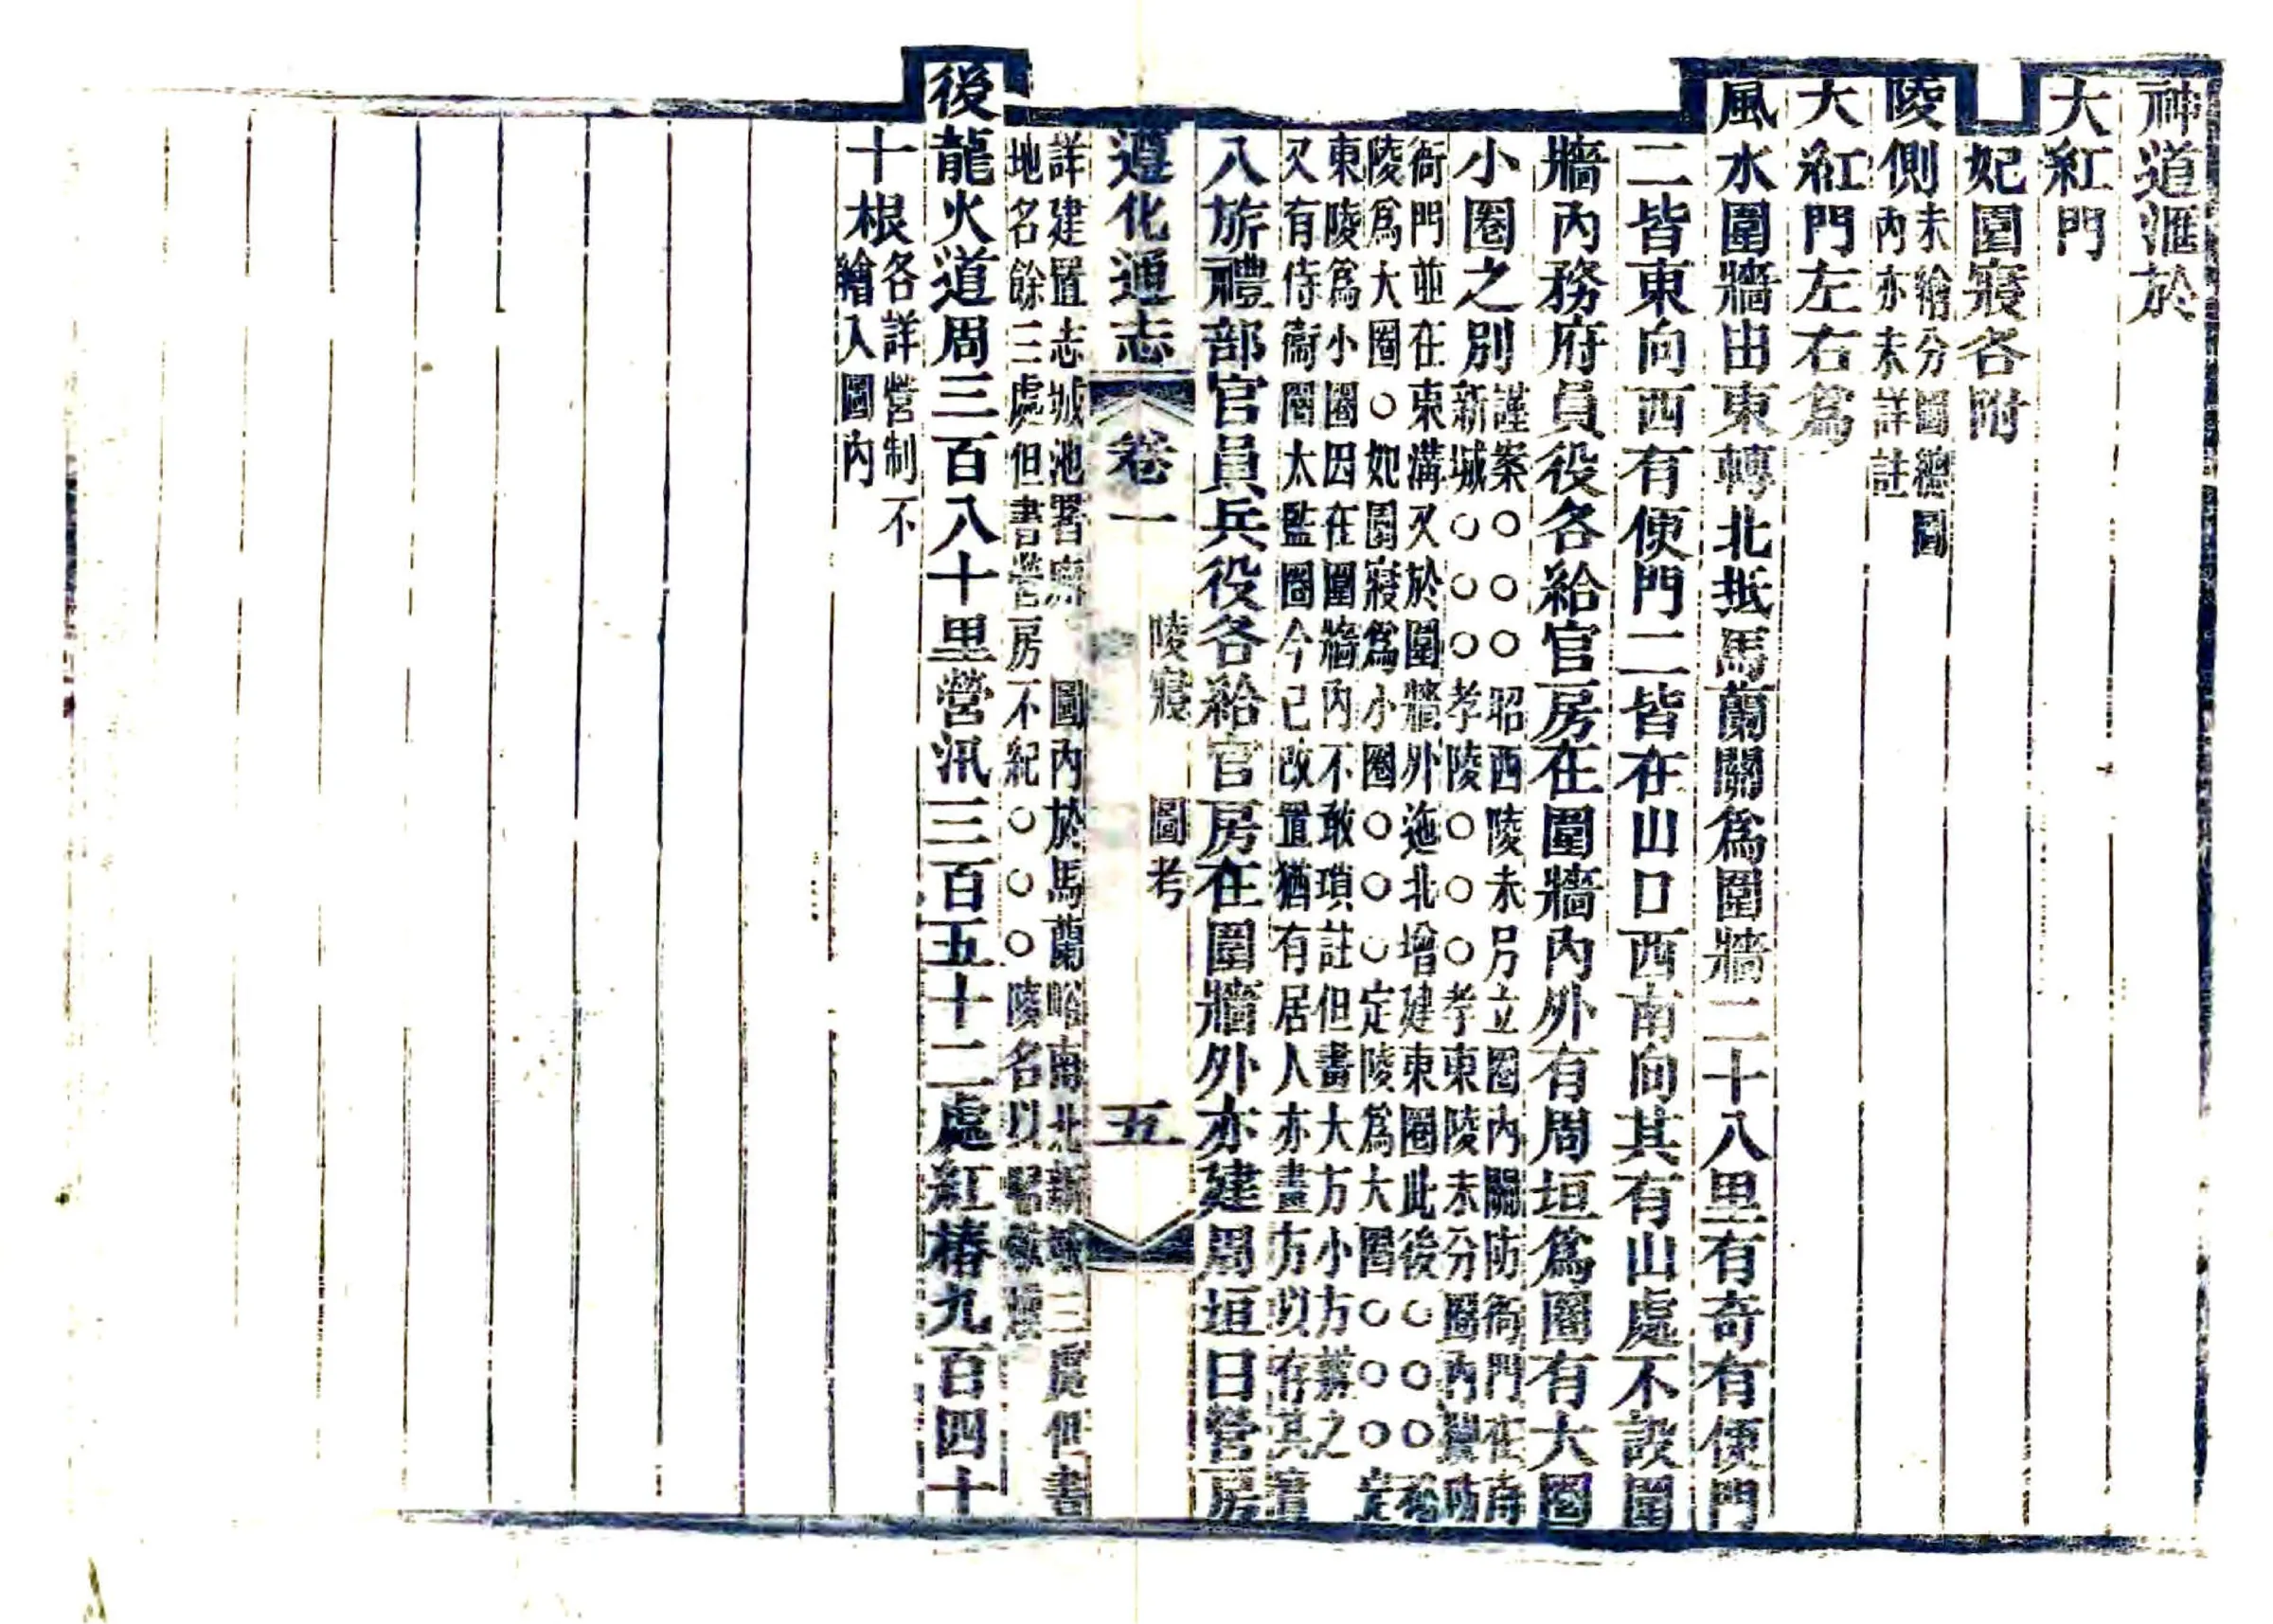 神道滙於
大紅門
妃園寢各附
陵側未繪分圖總圖
內亦未詳註
大紅門左右爲
風水圍牆由東轉北抵馬蘭關爲圍牆二十八里有奇有便門
二皆東向西有便門二皆在山口西南向其有山處不設圍
牆內務府員役各給官房在圍牆內外有周垣爲圈有大圈
小圈之別謹案○○○昭西陵未另立圈內關防衙門在南
新城○○○孝陵○○○孝東陵未分圈內關防
衙門並在東溝又於圍牆外迤北增建東圈此後○○○裕
陵爲大圈○妃園寢爲小圈○○○定陵爲大圈○○○定
東陵爲小圈因在圍牆內不敢瑣註但畫大方小方別之
又有侍衞圈太監圈今已改置猶有居人亦畫方以存其舊
八旂禮部官員兵役各給官房在圍牆外亦建周垣曰營房
遵化通志 卷一 陵寢 圖考 五
詳建置志城池署廨 圖內於馬蘭峪南北新城三處但書
地名餘三處但書營房不紀○○○陵名以昭敬慎
後龍火道周三百八十里營汛三百五十二處紅樁九百四十
十根各詳營制不
繪入圖內